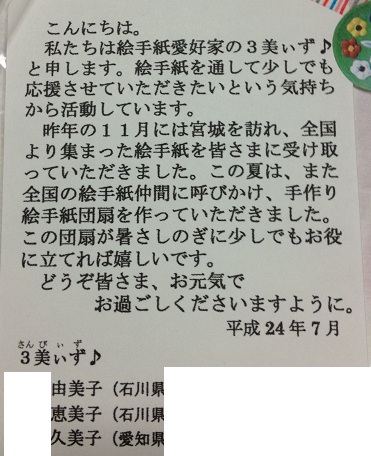 こんにちは。
私たちは絵手紙愛好家の３美ぃず♪
と申します。絵手紙を通して少しでも
応援させていただきたいという気持ち
から活動しています。
昨年の１１月には宮城を訪れ、全国
より集まった絵手紙を皆さまに受け取
っていただきました。この夏は、また
全国の絵手紙仲間に呼びかけ、手作り
絵手紙団扇を作っていただきました。
この団扇が暑さしのぎに少しでもお役
に立てれば嬉しいです。
どうぞ皆さま、お元気で
お過ごしくださいますように。
平成 24 年 7 月
さんびぃず
３美ぃず♪
由美子（石川県
恵美子（石川県
久美子（愛知県